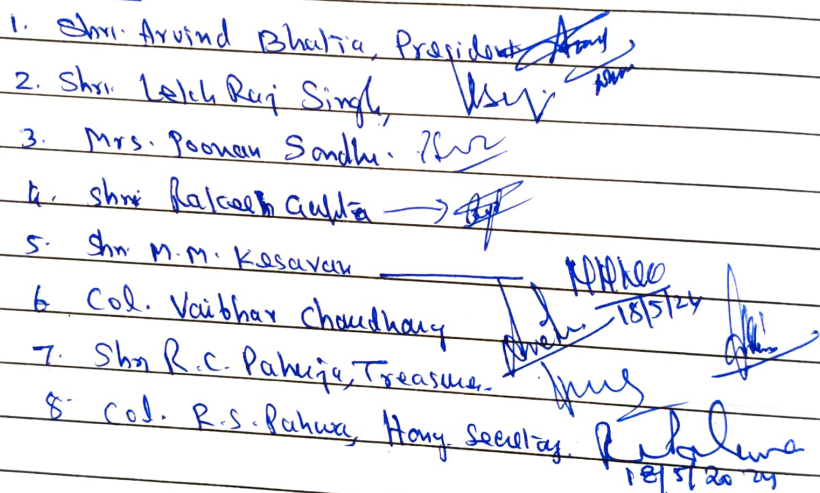 1. Shri. Arvind Bhatia, President
2. Shri. Lekh Raj Singh,
3. Mrs. Poonam Sondhi.
4. Shri Rakesh Gupta
5. Shri M.M. Kesavan
18/5/24
6 Col. Vaibhav Choudhary
7. Shri R.C. Pahuja, Treasurer.
8. Col. R.S. Pahwa, Hony. Secretary.
18/5/2024